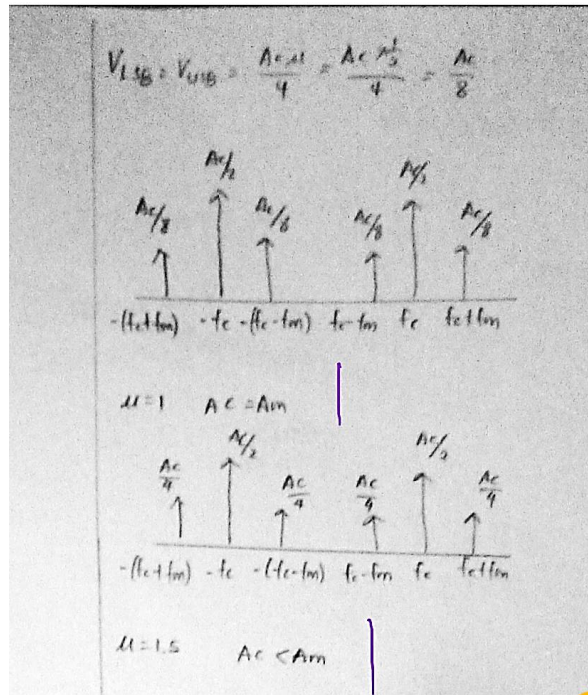 V_LSB = V_USB = Acμ/4 = Ac × 1/2 / 4 = Ac/8
Ac/2 Ac/2
Ac/8 Ac/8 Ac/8 Ac/8
-(fc+fm) -fc -(fc-fm) fc-fm fc fc+fm
μ=1 Ac=Am
Ac/2 Ac/2
Ac/4 Ac/4 Ac/4 Ac/4
-(fc+fm) -fc -(fc-fm) fc-fm fc fc+fm
μ=1.5 Ac<Am